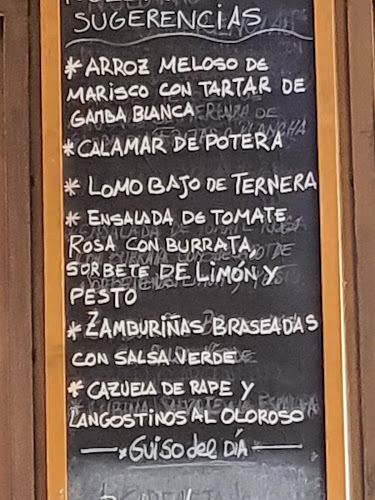 SUGERENCIAS
* ARROZ MELOSO DE
MARISCO CON TARTAR DE
GAMBA BLANCA
* CALAMAR DE POTERA
* LOMO BAJO DE TERNERA
* ENSALADA DE TOMATE
ROSA CON BURRATA,
SORBETE DE LIMÓN Y
PESTO
* ZAMBURIÑAS BRASEADAS
CON SALSA VERDE
* CAZUELA DE RAPE Y
LANGOSTINOS AL OLOROSO
* GUISO DEL DÍA